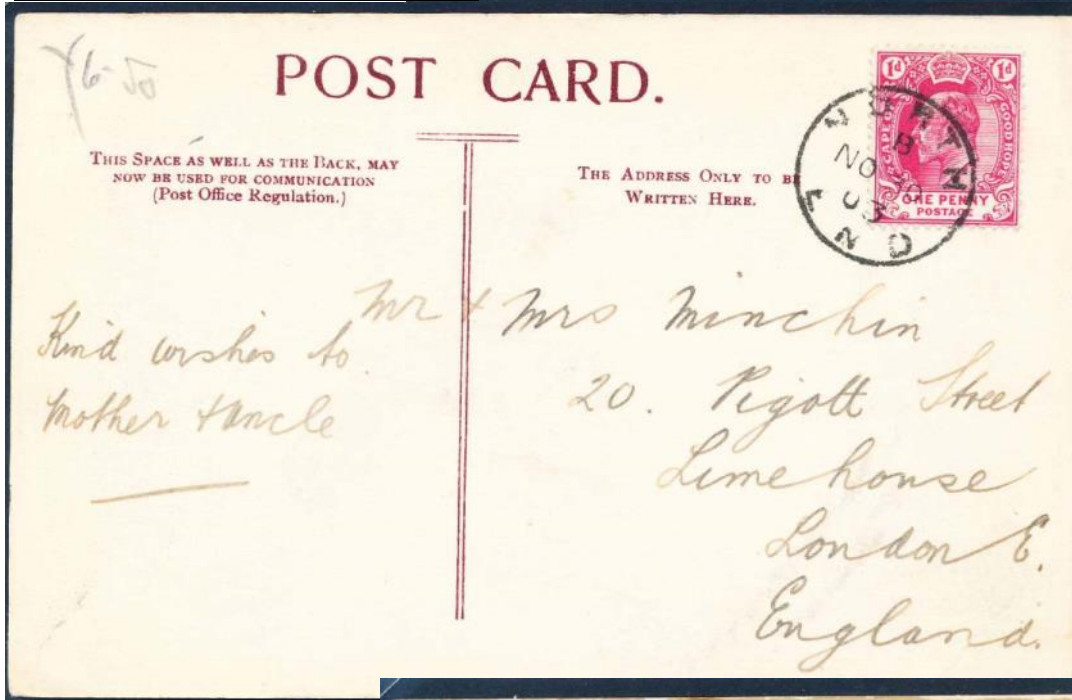 Y6-50
POST CARD.
THIS SPACE AS WELL AS THE BACK, MAY
NOW BE USED FOR COMMUNICATION
(Post Office Regulation.)
THE ADDRESS ONLY TO BE
WRITTEN HERE.
1d 1d
CAPE OF GOOD HOPE
ONE PENNY
POSTAGE
NORTH END
B
NO 30
03
Kind wishes to
Mother & Uncle
Mr & Mrs Minchin
20. Pigott Street
Limehouse
London E.
England.